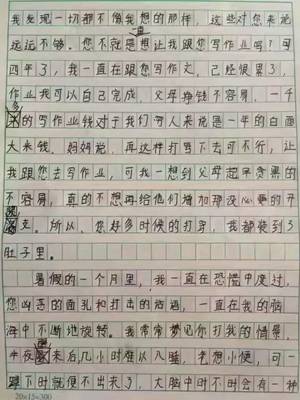 我发现一切都不像我想的那样，这些对您来说
远远不够。您不就是想让我跟您写作业吗？可
四年了，我一直在跟您写作文，已经很累了，
作业我可以自己完成，父母挣钱不容易，一千
多的写作业钱对于我们穷人来说是一年的白面
大米钱。妈妈说，再这样打骂下去可不行，让
我跟您去写作业，可我一想到父母起早贪黑的
不容易，真的不想再给他们增加那没必要的开
支。所以，您好多时候的打骂，我都装到了
肚子里。
暑假的一个月里，我一直在恐慌中度过，
您凶恶的面孔和打击的话语，一直在我的脑
海中不断地旋转。我常常梦见你打我的情景，
半夜醒来后几小时难以入睡，老想小便，可一
蹲下时就便不出来了，大脑中时不时会有一种
20×15=300